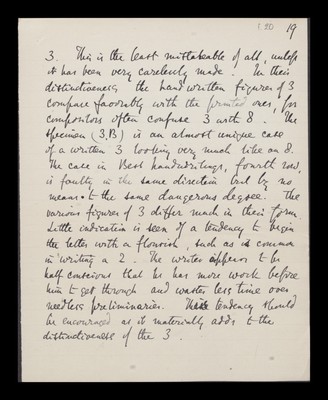 1.20 19
3. This is the least mistakeable of all, unless
it has been very carelessly made. In their
distinctiveness, the hand written figures of 3
compare favorably with the printed ones, for
compositors often confuse 3 with 8. The
specimen (3,B) is an almost unique case
of a written 3 looking very much like an 8.
The case in Best handwritings, fourth row,
is faulty in the same direction but by no
means to the same dangerous degree. The
various figures of 3 differ much in their form.
Little indication is seen of a tendency to begin
the letter with a flourish, such as is common
in writing a 2. The writer appears to be
half conscious that he has more work before
him to get through and wastes less time over
needless preliminaries. This tendency should
be encouraged as it materially adds to the
distinctiveness of the 3.